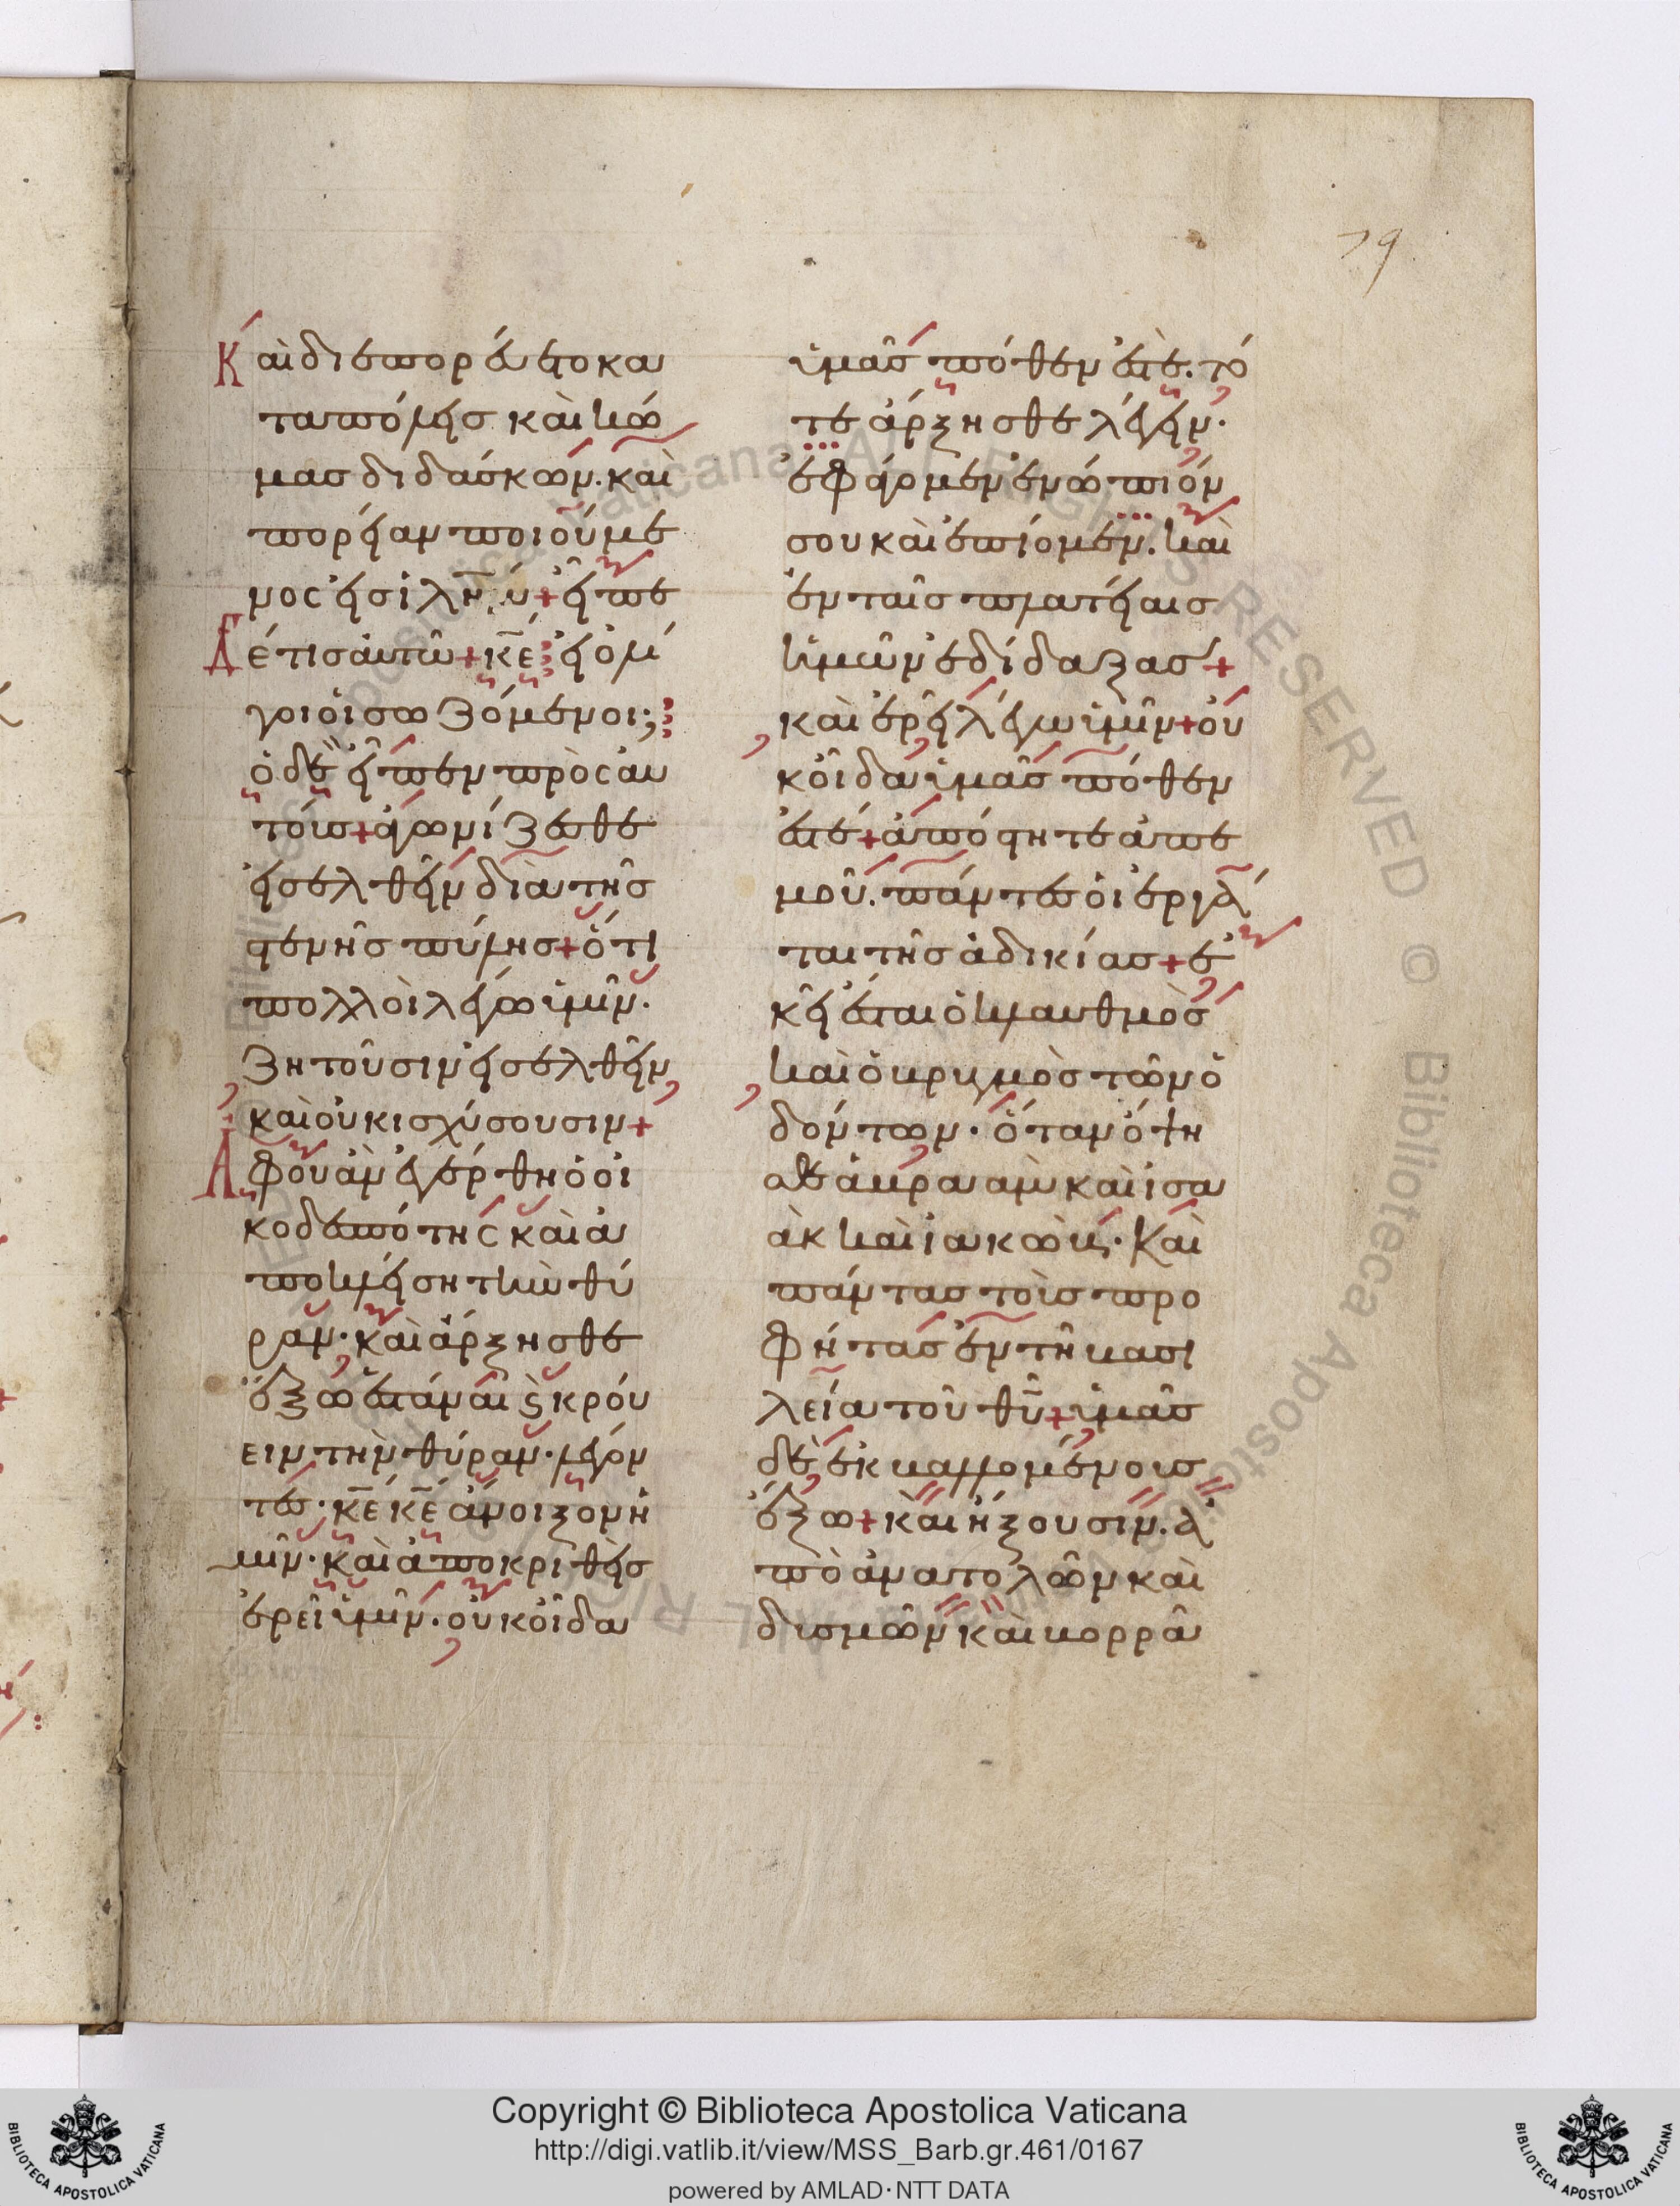 79
Καὶ διεπορεύετο κα
τα πόλεις καὶ κώ
μασ διδάσκων. καὶ
πορείαν ποιούμε
νος εἰσ ἰλη̄μ + εἶπε
Δέ τισ αὐτῶ + κ̅ε̅ εἰ ὀλί
γοι οἱ σωζόμενοι;
ὁ δὲ εἶπεν πρὸς αὐ
τούσ + ἀγωνίζεσθε
εἰσελθεῖν διὰ τῆσ
στενῆσ πύλησ + ὅτι
πολλοὶ λέγω ὑμῖν.
ζητοῦσιν εἰσελθεῖν
καὶ οὐκ ισχύσουσιν +
Ἀφ οὗ ἂν ἐγέρθη ὁ οἰ
κοδεσπότης καὶ ἀ
ποκλείση τὴν θύ
ραν. καὶ ἄρξησθε
ἔξω ἑστάναι ϗ κρού
ειν τὴν θύραν. λέγον
τεσ. κ̅ε̅ κ̅ε̅ ἄνοιξον ἡ
μῖν. καὶ ἀποκριθεὶσ
ἐρεῖ ὑμῖν. οὐκ οἶδα
ὑμᾶσ πόθεν ἐστέ. τό
τε ἄρξησθε λέγειν.
ἐφάγομεν ἐνώπιόν
σου καὶ ἐπίομεν. καὶ
ἐν ταῖσ πλατείαισ
ἡμῶν ἐδίδαξασ +
καὶ ἐρεῖ λέγω ὑμῖν + οὐ
κ οἶδα ὑμᾶσ πόθεν
ἐστέ + ἀπόστητε ἀπ ε
μοῦ. πάντεσ οἱ ἐργά
ται τῆσ ἀδικίασ + ἐ
κεῖ ἔσται ὁ κλαυθμὸσ
καὶ ὁ βρυγμὸσ τῶν ὀ
δόντων. ὅταν ὄψη
σθε ἀβραὰμ καὶ ἰσα
ὰκ καὶ ἰακώβ. Καὶ
πάντας τοὺσ προ
φήτασ ἐν τῆ βασι
λεία τοῦ θ̅υ̅ + ὑμᾶσ
δὲ ἐκβαλλομένουσ
ἔξω + καὶ ἥξουσιν. ἀ
πὸ ἀνατολῶν καὶ
δυσμῶν καὶ βορρᾶ
Copyright © Biblioteca Apostolica Vaticana
http://digi.vatlib.it/view/MSS_Barb.gr.461/0167
powered by AMLAD·NTT DATA